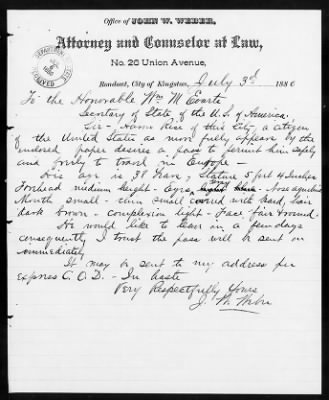 Office of JOHN W. WEBER,
Attorney and Counselor at Law,
No. 26 Union Avenue,
Rondout, City of Kingston, July 3rd 1880
To the Honorable Wm M Evarts
Secretary of State of the U.S. of America.
Sir - Rose of this City, a citizen
of the United States as more fully appears by the
enclosed paper desires a pass to permit him safely
and freely to travel in Europe -
His age is 38 Years, Stature 5 feet 4 inches
Forehead medium height - Eyes, - Nose aquiline
Mouth small - chin small covered with beard, hair
dark brown - complexion light - Face fair & round.
He would like to leave in a few days
consequently I trust the pass will be sent on
immediately
It may be sent to my address per
Express C.O.D. - In haste
Very Respectfully Yours
J. W. Weber